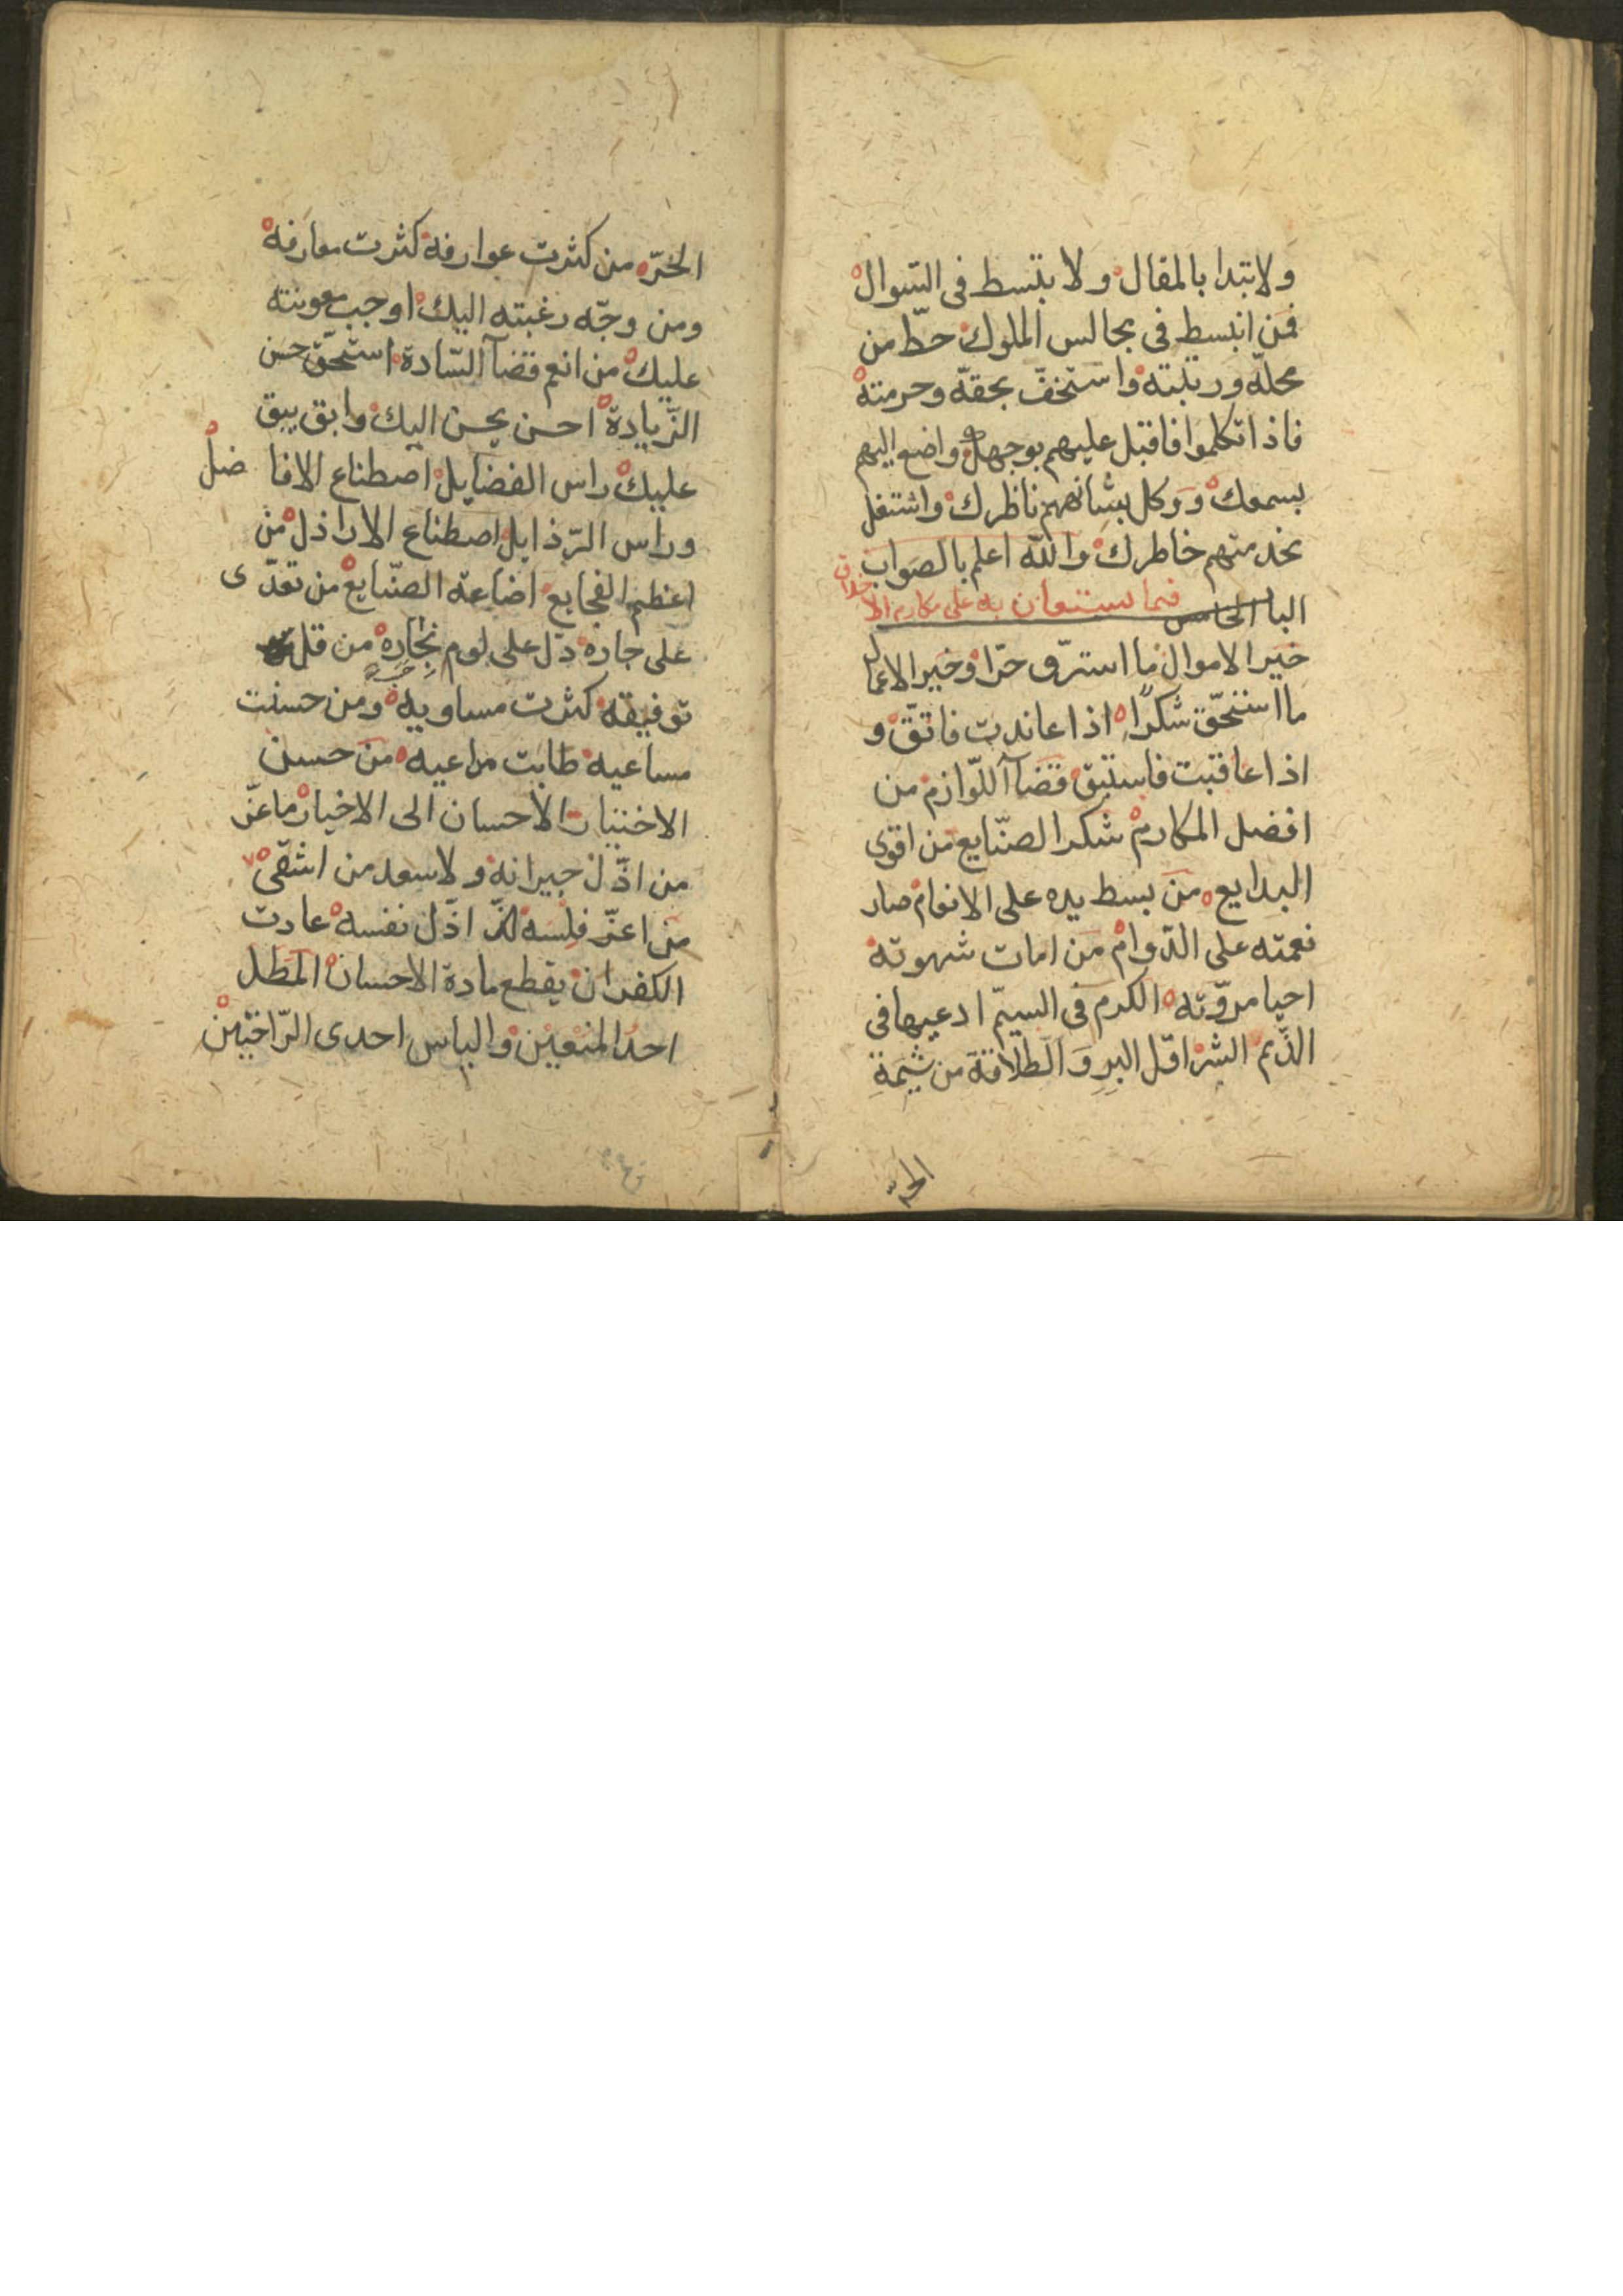 ولا تبدا بالمقال ولا بتبسط فى السوال
فمن انبسط فى مجالس الملوك حطّ من
محلّه ورتبته واستخفّ بحقّه وحرمته
فاذا تكلموا فاقبل عليهم بوجهك واضع اليهم
بسمعك ووكل بشانهم ناظرك واشتغل
بخدمتهم خاطرك والله اعلم بالصواب
الباب الخامس فيما يستعان به على مكارم الاخلاق
خير الاموال ما استرق حرّا وخير الاعمال
ما استحقّ شكرًا اذا عاندت فاتّق و
اذا عاقبت فاستبق قضآ اللّوازم من
افضل المكارم شكر الصنّايع من اقوى
البدايع من بسط يده على الانعام صار
نعمته على الدّوام من امات شهوته
احيا مروّته الكرم فى السيّم ادعيها فى
الذّيم البشر اوّل البرِ وَ الطلاقة من شيمَةِ
الحرّ
الحرّ من كثرت عوارفه كثرت معارفه
ومن وجّه رغبته اليك اوجب معونته
عليك من انعم قضآ السّادة استحّق حسن
الزّيادة احسن يحسن اليك وابق يبق
عليك راس الفضايل اصطناع الافاضل
وراس الرّذايل اصطناع الاراذل من
اعظم الفجايع اضاعة الصنّايع من تعدّى
على جاره دلّ على لوم نجاره من قل
توفيقه كثرت مساويه ومن حسنت
مساعيه طابت مراعيه من حسن
الاختيار الاحسان الى الاخيار ما عزّ
من اذّل جيرانه ولا سعد من اشقى
من اعزّ فلسه اذّل نفسه عادت
الكفران يقطع مادة الاحسان المطل
احدُ المنعين والياس احدى الرّاحتين